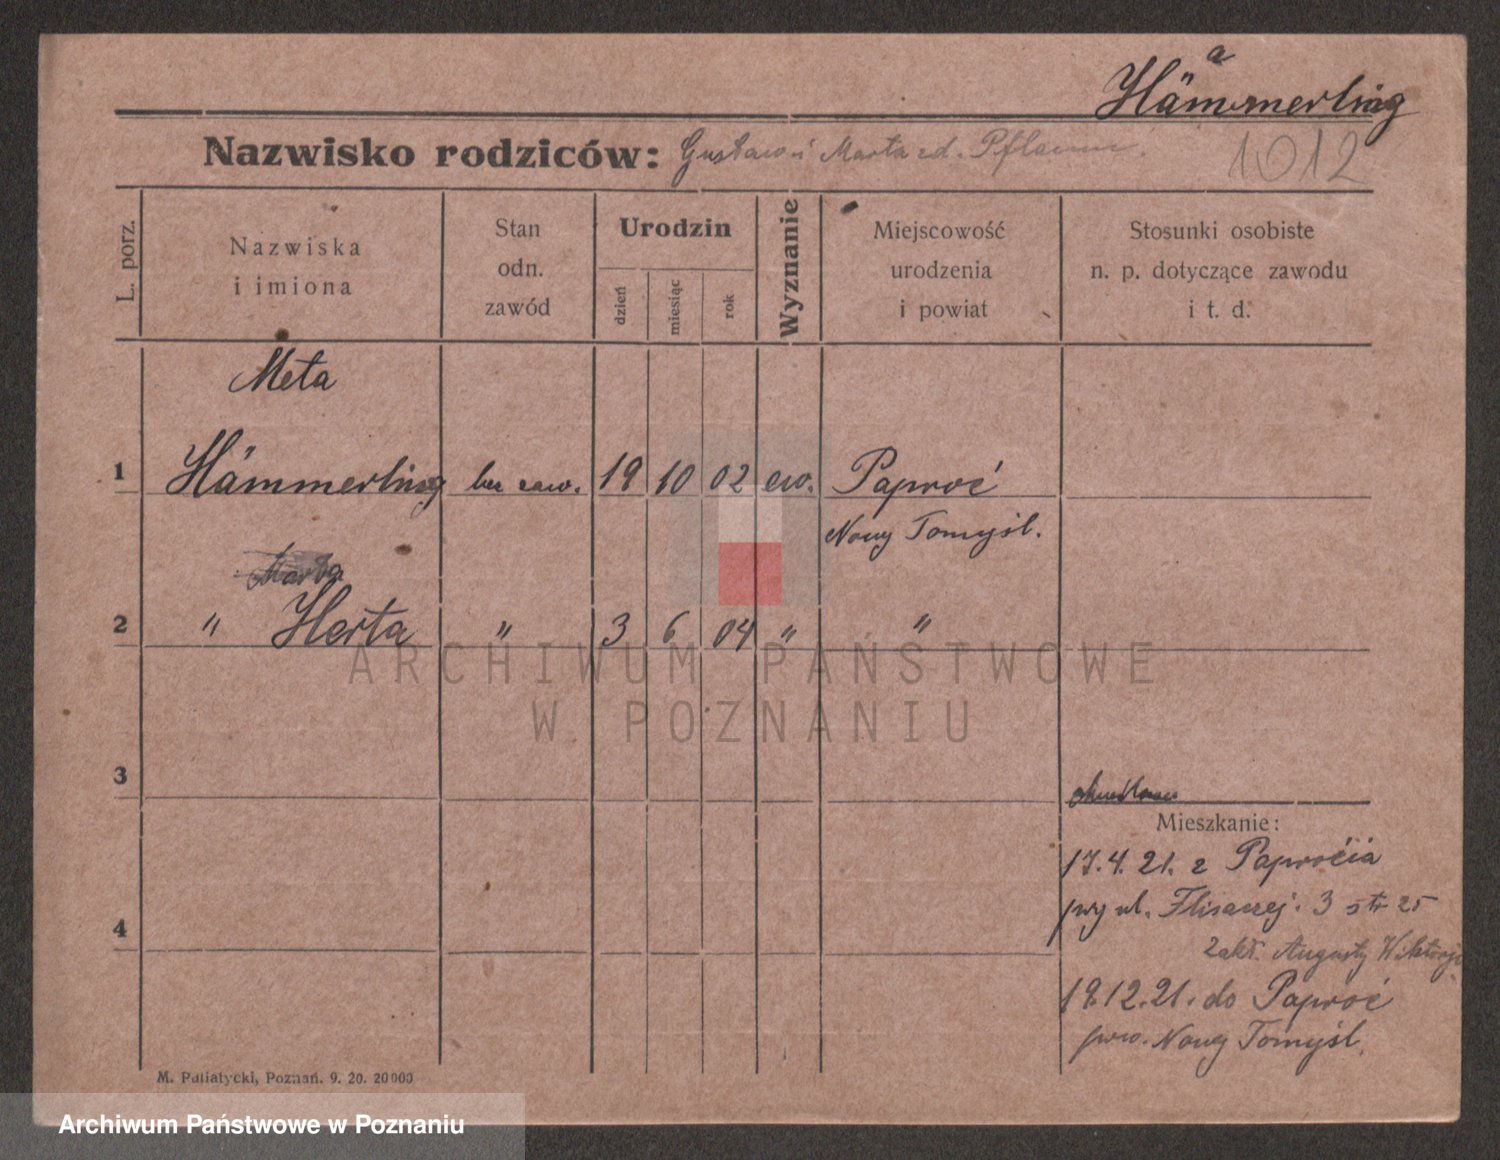 a
Hämmerling
Nazwisko rodziców: Gustaw i Marta zd. Pflaum.
1012
L. porz.
Nazwiska
i imiona
Stan
odn.
zawód
Urodzin
dzień
miesiąc
rok
Wyznanie
Miejscowość
urodzenia
i powiat
Stosunki osobiste
n. p. dotyczące zawodu
i t. d.
Meta
1 Hämmerling bez zaw. 19 10 02 ew. Paproć
Nowy Tomyśl.
Marta
2 " Herta " 3 6 04 " "
ARCHIWUM PAŃSTWOWE
W POZNANIU
3
Mieszkanie:
17.4.21. z Paproćia
przy ul. Flisaczej. 3 str 25
4
Zakł. Augusty Wiktorji
19.12.21. do Paproć
pow. Nowy Tomyśl.
M. Putiatycki, Poznań. 9. 20. 20000
Archiwum Państwowe w Poznaniu